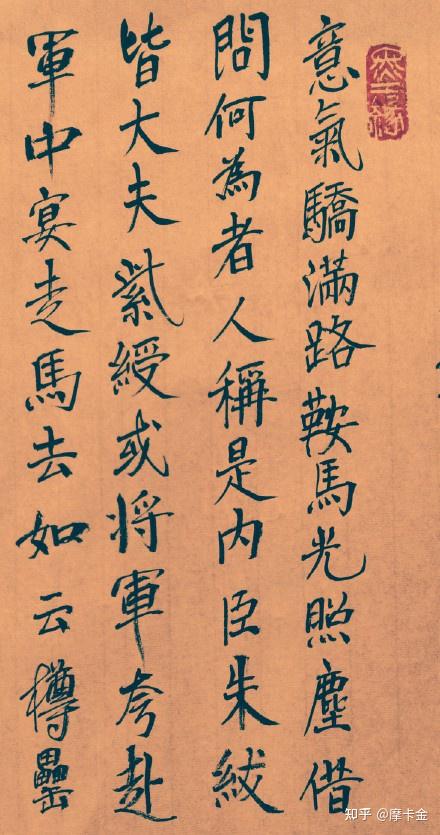 意氣驕滿路鞍馬光照塵借
問何為者人稱是内臣朱紱
皆大夫紫綬或将軍夸赴
軍中宴走馬去如云樽罍
知乎 @摩卡金